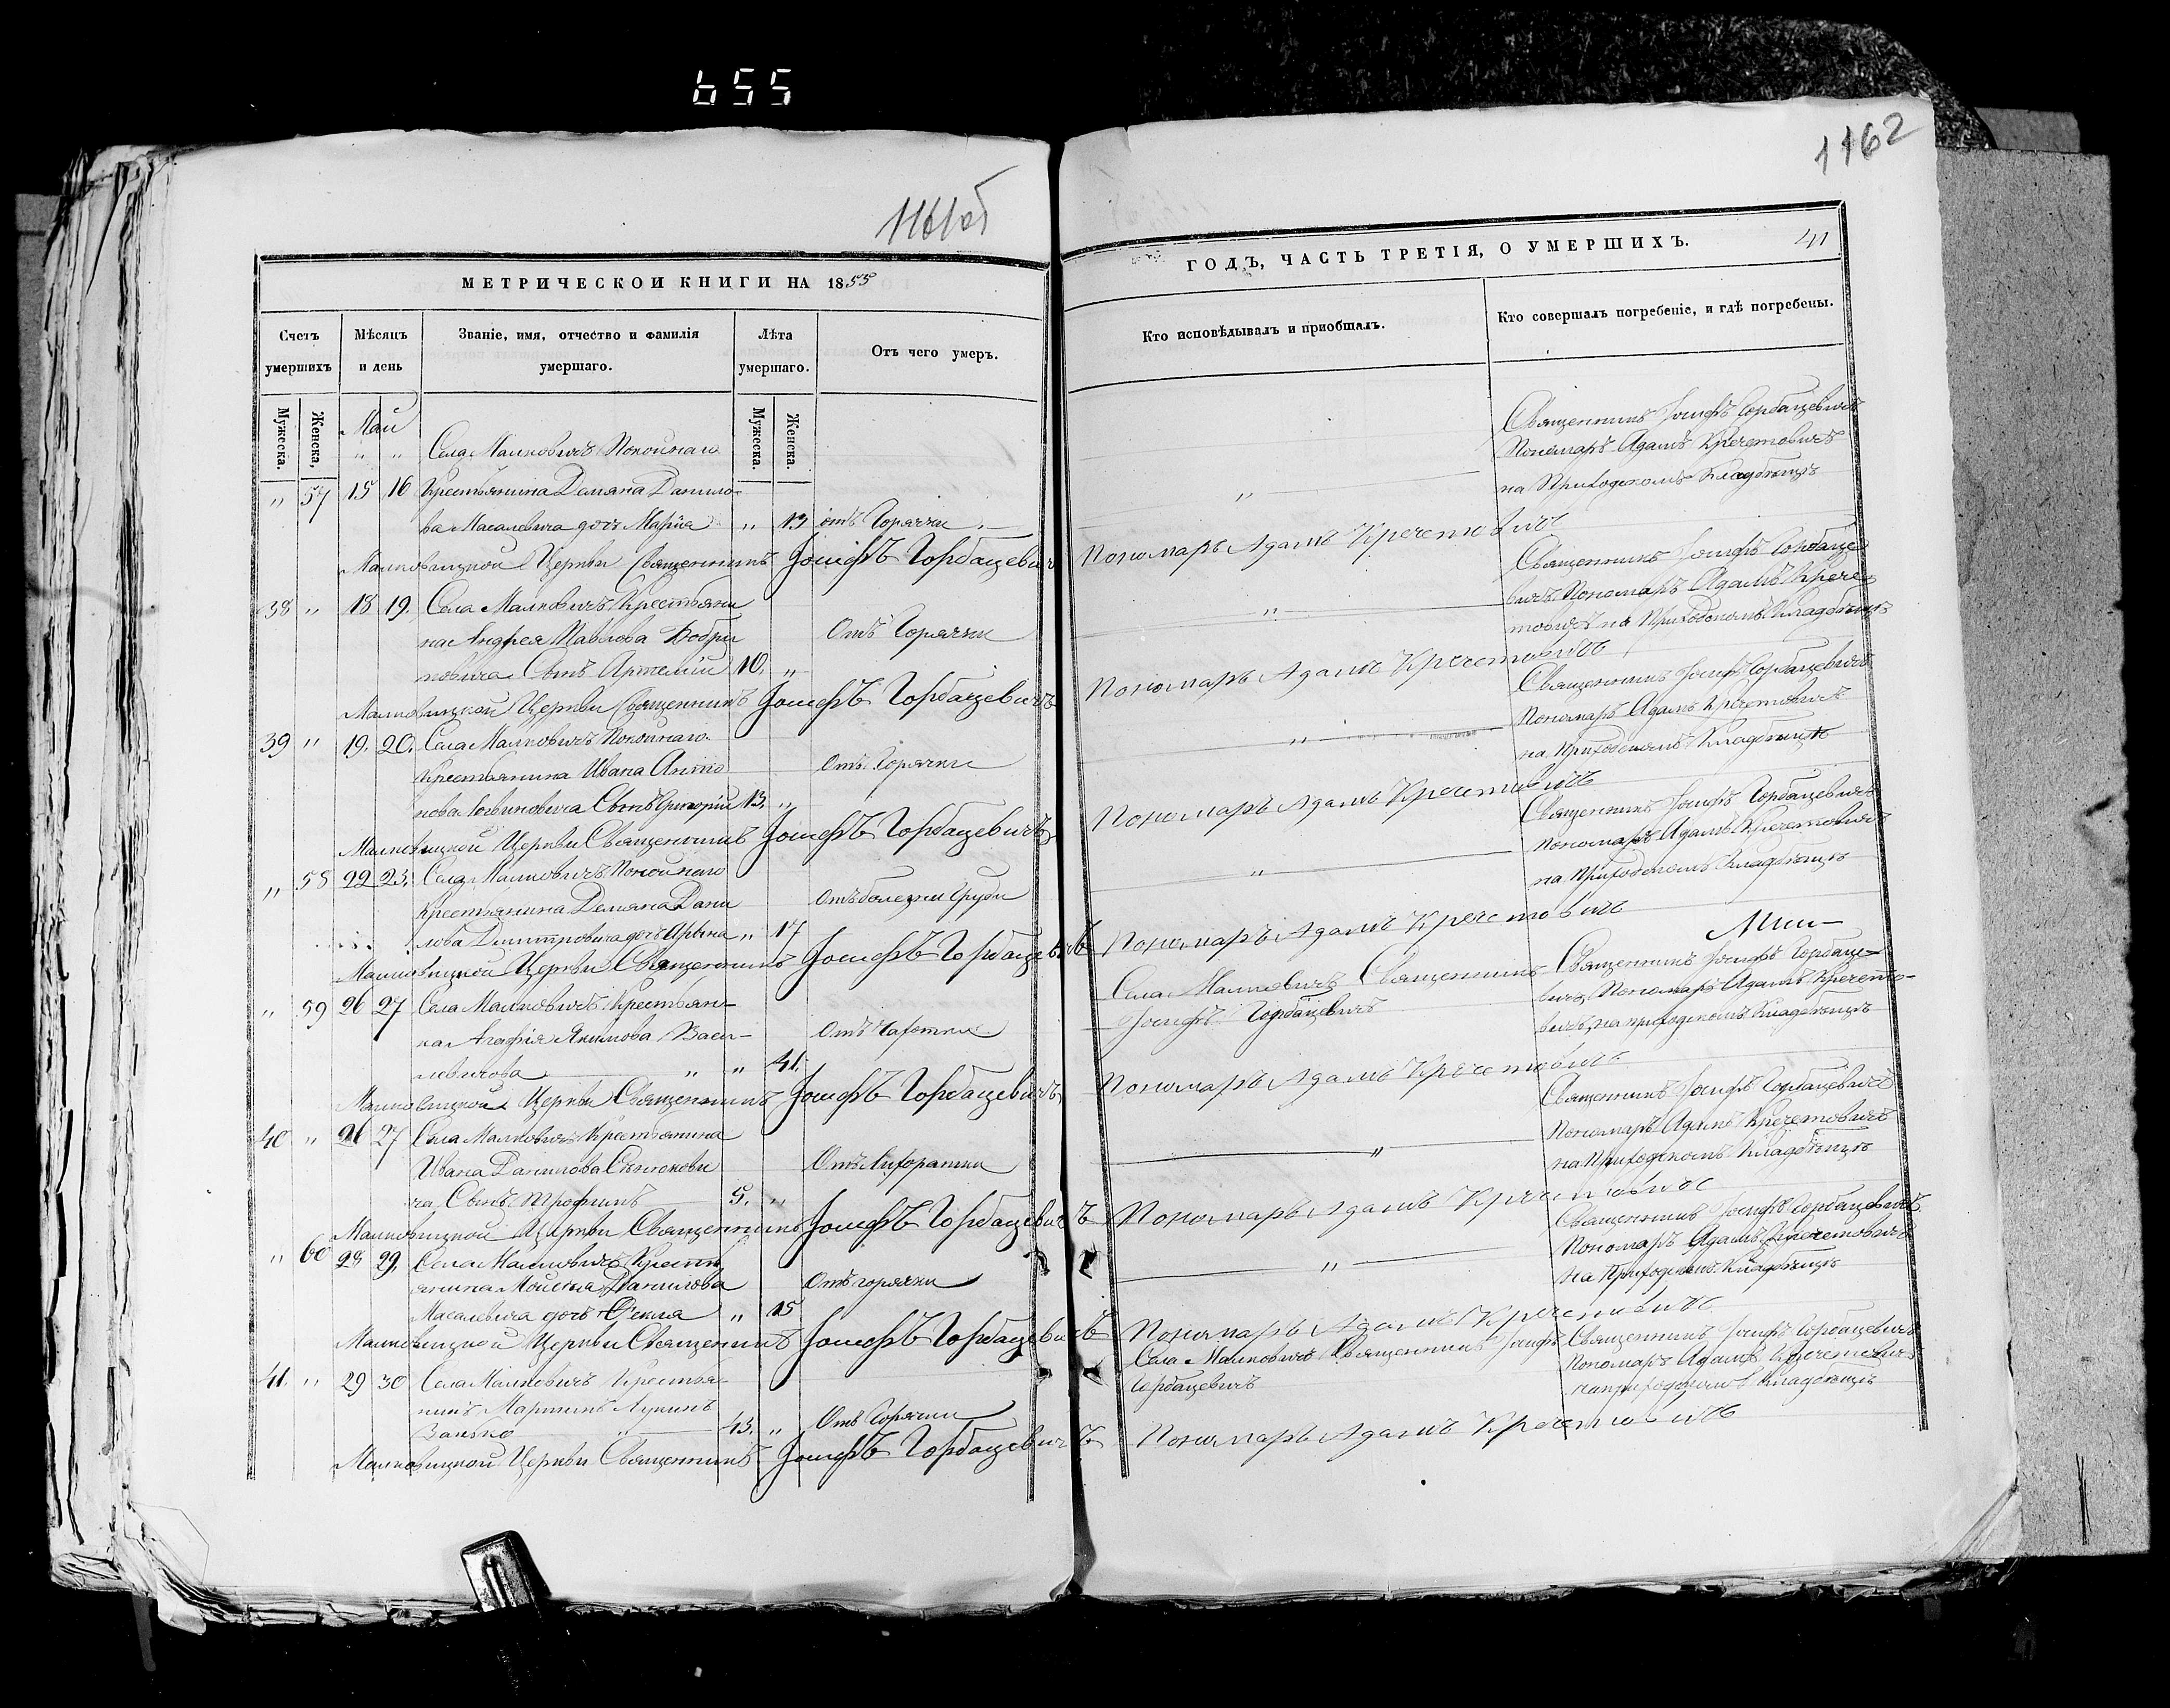 655
1161об
1162
МЕТРИЧЕСКОЙ КНИГИ НА 1855
ГОДЪ, ЧАСТЬ ТРЕТІЯ, О УМЕРШИХЪ.
41
Счетъ умершихъ
Мѣсяцъ и день
Званіе, имя, отчество и фамилія умершаго.
Лѣта умершаго.
Отъ чего умеръ.
Кто исповѣдывалъ и пріобщалъ.
Кто совершалъ погребеніе, и гдѣ погребены.
Мужеска.
Женска,
Мужеска.
Женска.
Май
" " Села Малковичъ Покойнаго
" 57 15 16 Крестьянина Демяна Данило-
ва Масалевича дочь Марія " 13 отъ Горячки
"
Священникъ Іосифъ Горбацевичъ
Пономаръ Адамъ Кречетовичъ
на Приходскомъ Кладбищѣ
Малковицкой Церкви Священникъ Іосифъ Горбацевичъ Пономаръ Адамъ Кречетовичъ
38 " 18 19. Села Малковичъ Крестьяни
на Андрея Павлова Бобри Отъ Горячки
новича Сынъ Артемій 10. "
"
Священникъ Іосифъ Горбаце
вичъ Пономаръ Адамъ Крече
товичъ на Приходскомъ Кладбищѣ
Малковицкой Церкви Священникъ Іосифъ Горбацевичъ Пономаръ Адамъ Кречетовичъ
39 " 19. 20. Села Малковичъ Покойнаго
Крестьянина Ивана Анто Отъ Горячки
нова Сынъ Григорій 13. "
"
Священникъ Іосифъ Горбацевичъ
Пономаръ Адамъ Кречетовичъ
на Приходскомъ Кладбищѣ
Малковицкой Церкви Священникъ Іосифъ Горбацевичъ Пономаръ Адамъ Кречетовичъ
" 58 22 23. Села Малковичъ Покойнаго
Крестьянина Демяна Дани Отъ болезни Груди
лова Дмитровича дочь Арына " 17
"
Священникъ Іосифъ Горбацевичъ
Пономаръ Адамъ Кречетовичъ
на Приходскомъ Кладбищѣ
Малковицкой Церкви Священникъ Іосифъ Горбацевичъ Пономаръ Адамъ Кречетовичъ
" 59 26 27 Села Малковичъ Крестьян-
ка Агафія Якимова Васи- Отъ Чахотки
левичова " " 41.
Села Малковичъ Священникъ
Іосифъ Горбацевичъ
Священникъ Іосифъ Горбаце-
вичъ, Пономаръ Адамъ Кречето-
вичъ, на приходскомъ Кладбищѣ
Малковицкой Церкви Священникъ Іосифъ Горбацевичъ Пономаръ Адамъ Кречетовичъ
40 " 26 27 Села Малковичъ Крестьянина
Ивана Данилова Отъ Лихорадки
ча Сынъ Трофимъ 5. "
"
Священникъ Іосифъ Горбацевичъ
Пономаръ Адамъ Кречетовичъ
на Приходскомъ Кладбищѣ
Малковицкой Церкви Священникъ Іосифъ Горбацевичъ Пономаръ Адамъ Кречетовичъ
" 60 28 29. Села Малковичъ Крестъ
янина Моисея Данилова Отъ горячки
Масалевича дочъ Ѳекла " 15
"
Священникъ Іосифъ Горбацевичъ
Пономаръ Адамъ Кречетовичъ
на Приходскомъ Кладбищѣ
Малковицкой Церкви Священникъ Іосифъ Горбацевичъ Пономаръ Адамъ Кречетовичъ
41. " 29 30 Села Малковичъ Крестья-
нинъ Мартинъ Лукинъ
Ванько " 43. " Отъ Горячки
Села Малковичъ Священникъ Іосифъ
Горбацевичъ
Священникъ Іосифъ Горбацевичъ
Пономаръ Адамъ Кречетовичъ
на приходскомъ Кладбищѣ
Малковицкой Церкви Священникъ Іосифъ Горбацевичъ Пономаръ Адамъ Кречетовичъ